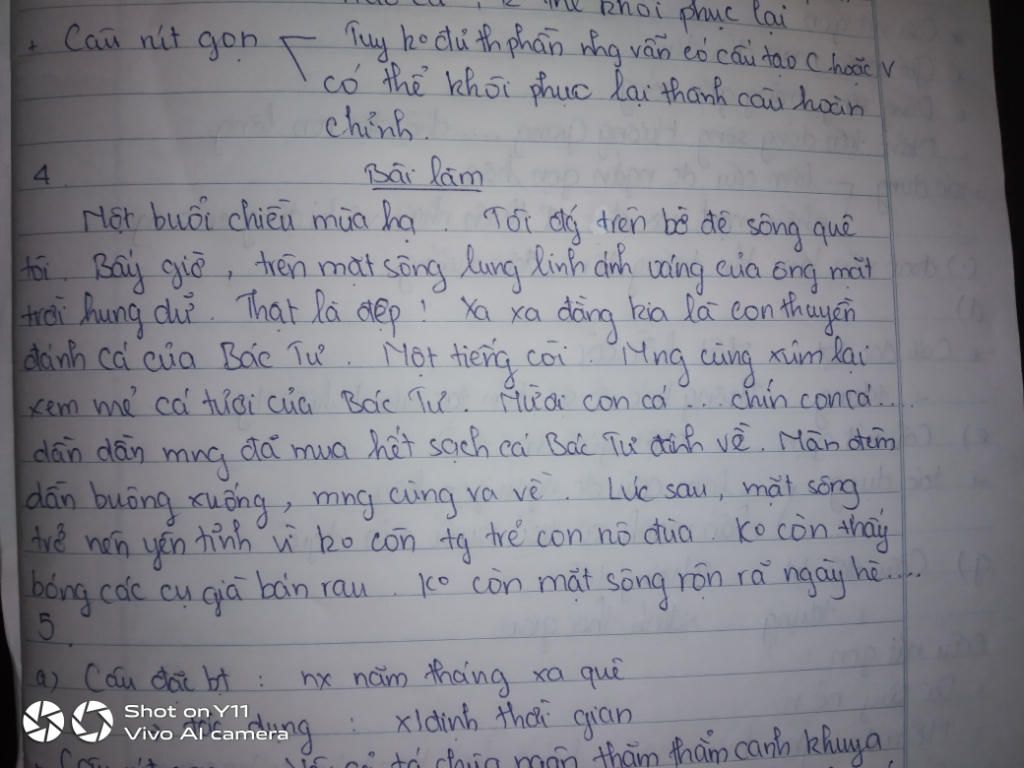 khôi phục lại
+ Câu rút gọn Tuy ko đủ th phần nhg vẫn có cấu tạo C hoặc V
có thể khôi phục lại thành câu hoàn
chỉnh.
4 Bài làm
Một buổi chiều mùa hạ. Tôi đứg trên bờ đê sông quê
tôi. Bấy giờ, trên mặt sông lung linh ánh vàng của ông mặt
trời hung dữ. Thật là đẹp! Xa xa đằng kia là con thuyền
đánh cá của Bác Tư. Một tiếng còi Mng cùng xúm lại
xem mẻ cá tươi của Bác Tư. Mười con cá... chín con cá....
dần dần mng đã mua hết sạch cá Bác Tư đánh về. Màn đêm
dần buông xuống, mng cùng ra về. Lúc sau, mặt sông
trở nên yên tĩnh vì ko còn tg trẻ con nô đùa. Ko còn thấy
bóng các cụ già bán rau. Ko còn mặt sông rộn rã ngày hè....
5.
a) Câu đặc bt : nx năm tháng xa quê
tác dụng : x/định thời gian
thăm thẳm canh khuya
Shot on Y11
Vivo AI camera